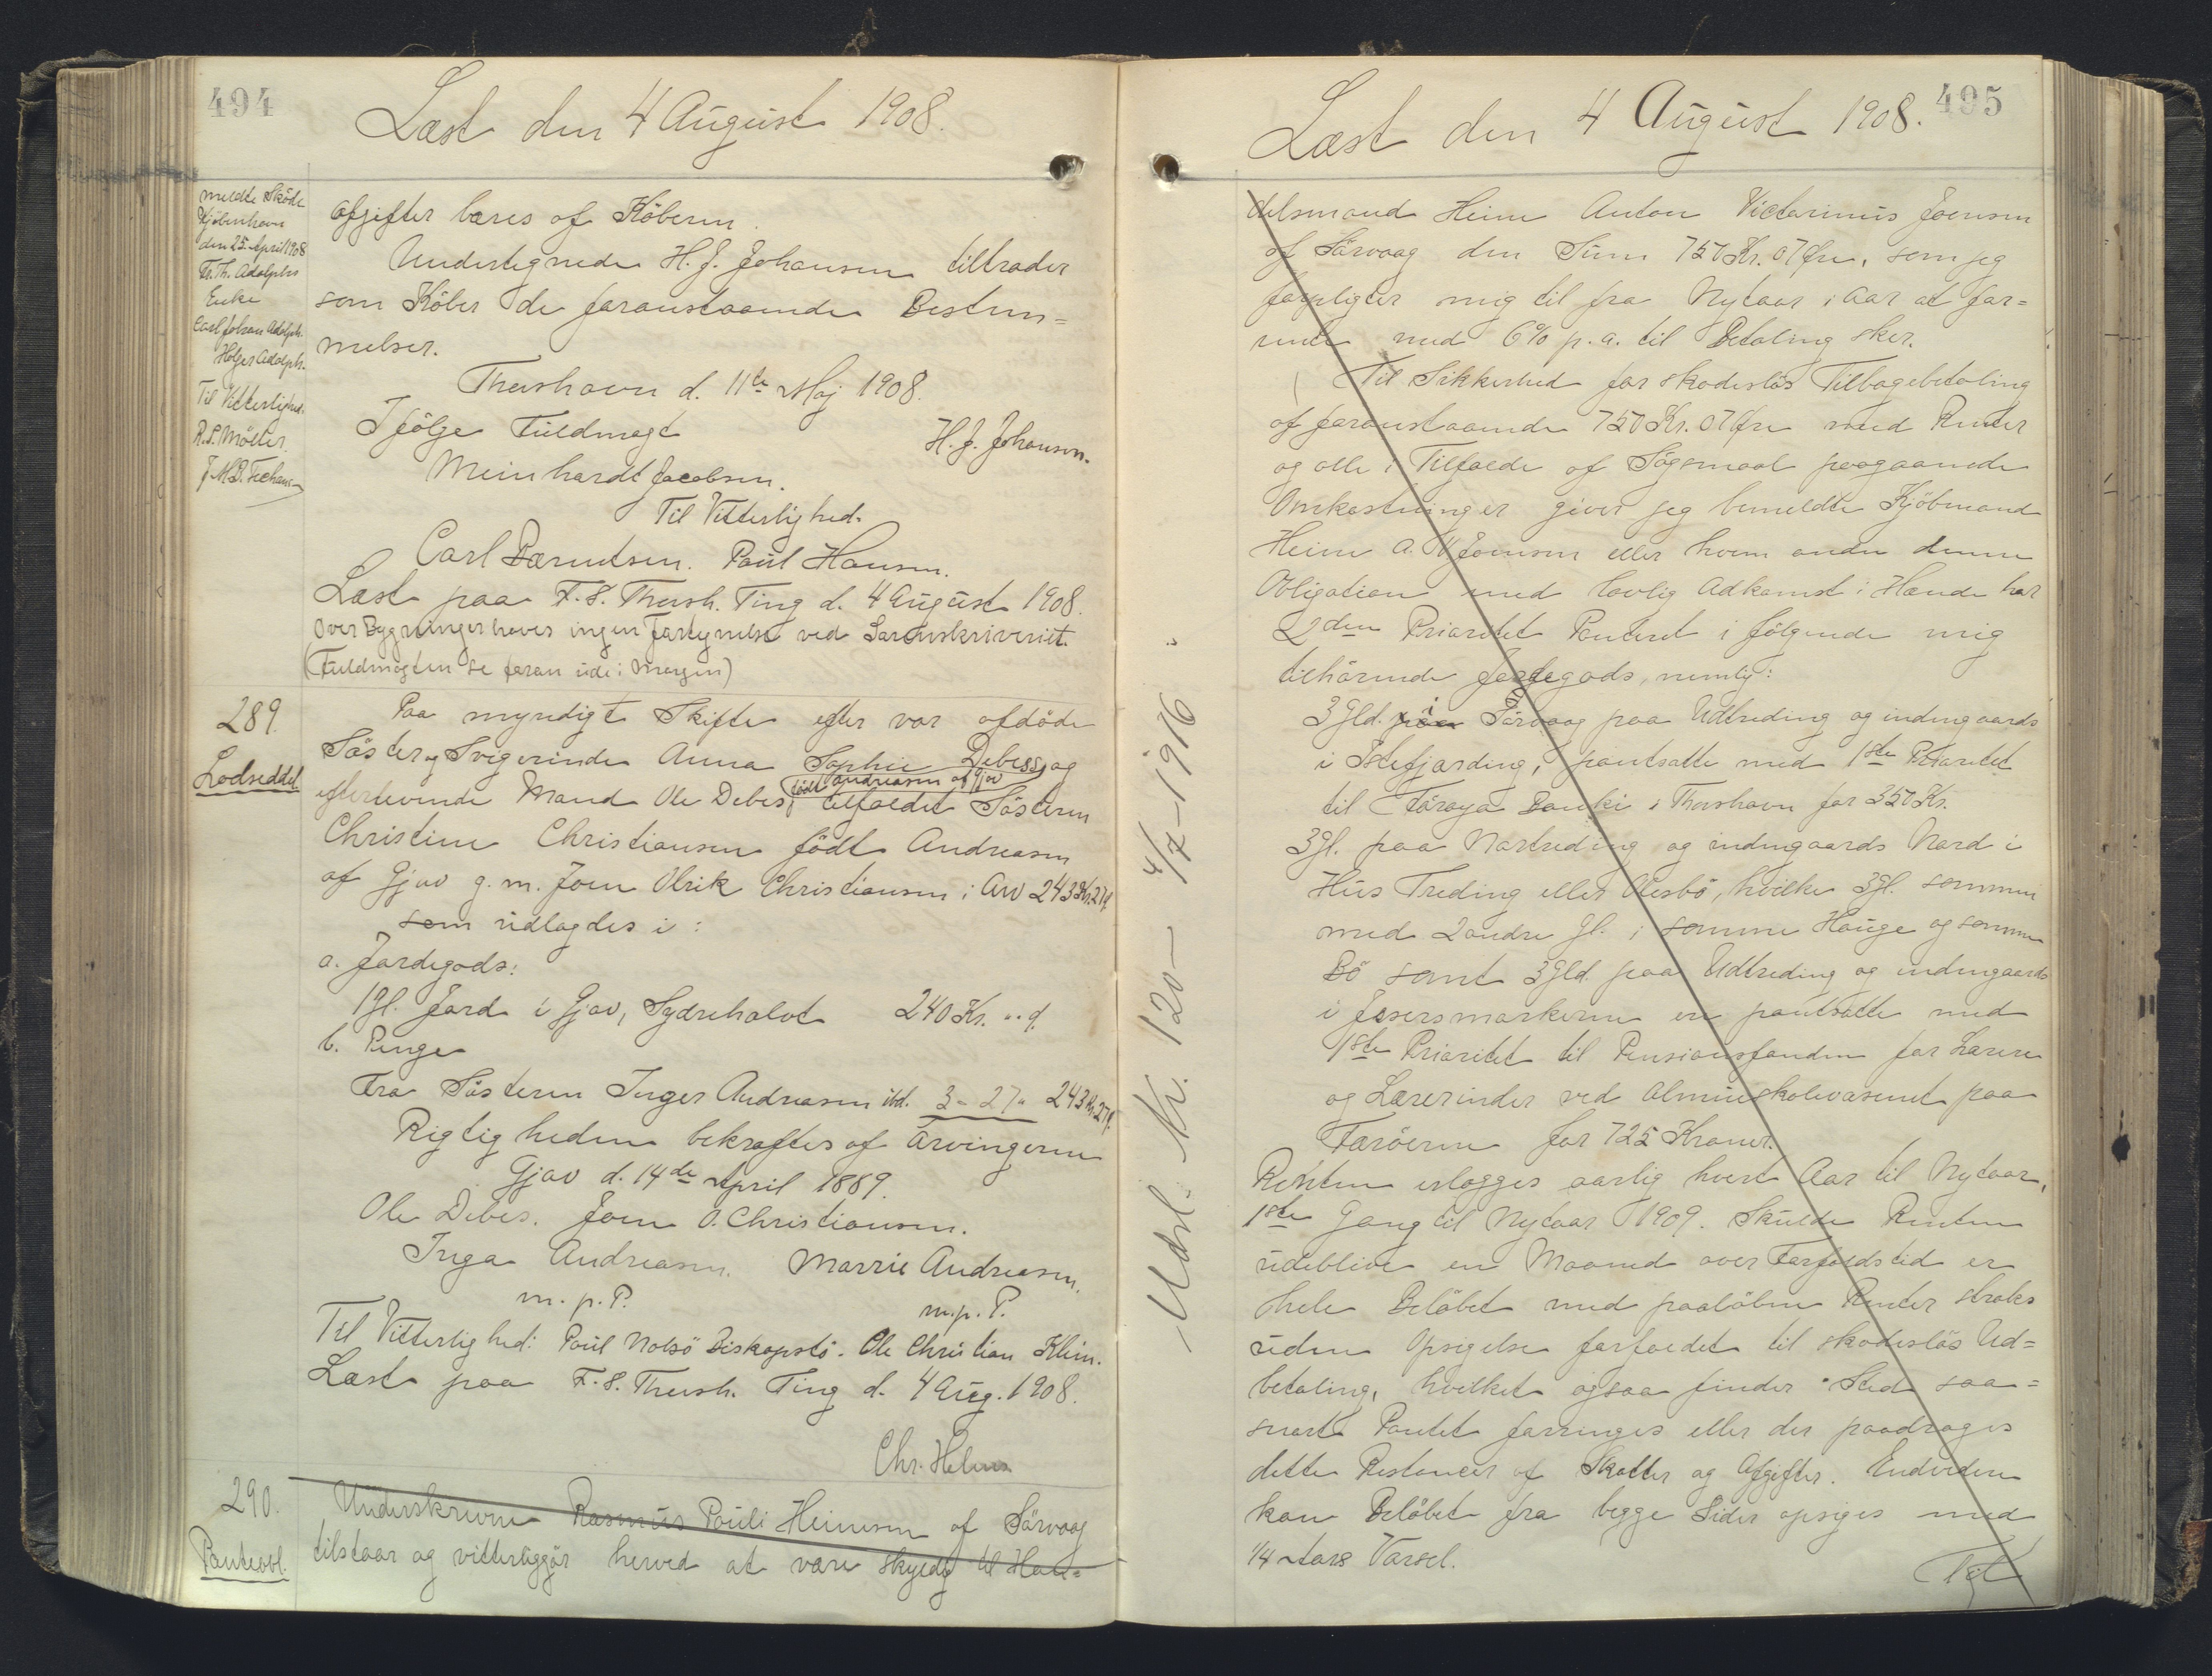 494
Læst den 4 August 1908.
meldte Sköde
Kjöbenhavn
den 25. April 1908
Fr. Th. Adolphs
Enke
Carl Johan Adolph.
Holger Adolph.
Til Vitterlighed.
R. P. Möller
J. M. D.
Afgifter bæres af Köberen.
Undertegnede H. J. Johansen tiltræder
som Köber de foranstaaende Bestem=
melser.
Thorshavn d. 11te Maj 1908.
Ifölge Fuldmagt
H. J. Johansen.
Meinhardt Jacobsen.
Til Vitterlighed.
Carl Bærentsen. Paul Hansen.
Læst paa F. S. Thorsh. Ting d. 4 August 1908.
Over Bygninger haves ingen Fortegnelse ved Sorenskriveriet.
(Fuldmagten se foran ude i Margen)
289.
Lodseddel
Paa myndigt Skifte efter vor afdöde
Söster og Svigerinde Anna Sophie Debess og
född Andreasen af Gjov
efterlevende Mand Ole Debes, tilfaldet Sösteren
Christine Christiansen född Andreasen
af Gjov g. m. Joen Olrik Christiansen i Arv 243 Kr. 27 Ø.
som udlagdes i:
a. Jordegods:
1 Gl. Jord i Gjov, Sydrehalvt 240 Kr. " Ø.
b. Penge
Fra Sösteren Inger Andreasen ibd. 3 - 27 " 243 Kr. 27 Ø.
Rigtigheden bekræftes af Arvingerne
Gjov d. 14de April 1889.
Ole Debes. Joen O. Christiansen.
Inga Andreasen. Marrie Andreasen.
m. p. P. m. p. P.
Til Vitterlighed: Poul Nolsö Biskopstö. Ole Christian Klein.
Læst paa F. S. Thorsh. Ting d. 4 Aug. 1908.
Chr. Helms
290.
Panteobl.
Underskrevne Rasmus Pauli Heinesen af Sörvaag
tilstaar og vitterliggör herved at være skyldig til Han=
495
Læst den 4 August 1908.
- Udsl. Nr. 120 - 4/7 - 1916.
delsmand Heine Anton Victarinus Joensen
af Sörvaag den Sum 750 Kr. 07 Øre, som jeg
forpligter mig til fra Nytaar i Aar at for=
rente med 6% p. a. til Betaling sker.
Til Sikkerhed for skadeslös Tilbagebetaling
af foranstaaende 750 Kr. 07 Øre med Renter
og alle i Tilfælde af Sögsmaal paagaaende
Omkostninger giver jeg bemeldte Kjöbmand
Heine A. V. Joensen eller hvem anden denne
Obligation med lovlig Adkomst i Hænde har
2den Prioritet Panteret i fölgende mig
tilhörende Jordegods, nemlig:
3 Gld. paa i Sörvaag paa Udtreding og indengaards
i Istefjording, pantsatte med 1ste Prioritet
til Föroya Banki i Thorshavn for 350 Kr.
3 Gl. paa Nortreding og indengaards Nord i
Hus Treding eller Olesbö, hvilke 3 Gl. sammen
med 2 andre Gl. i samme Hauge og samme
Bö samt 3 Gld. paa Udtreding og indengaards
i Jssersmorkerne er pantsatte med
1ste Prioritet til Pensionsfonden for Lærere
og Lærerinder ved Almueskolevæsenet paa
Færöerne for 725 Kroner.
Renten erlægges aarlig hvert Aar til Nytaar,
1ste Gang til Nytaar 1909. Skulde Renten
udeblive en Maaned over Forfaldstid er
hele Belöbet med paalöbne Renter straks
uden Opsigelse forfaldet til skadeslös Ud=
betaling, hvilket ogsaa finder Sted saa=
snart Pantet forringes eller der paadrages
dette Restancer af Skatter og Afgifter. Endvidere
kan Belöbet fra begge Sider opsiges med
1/4 Aars Varsel.
Til